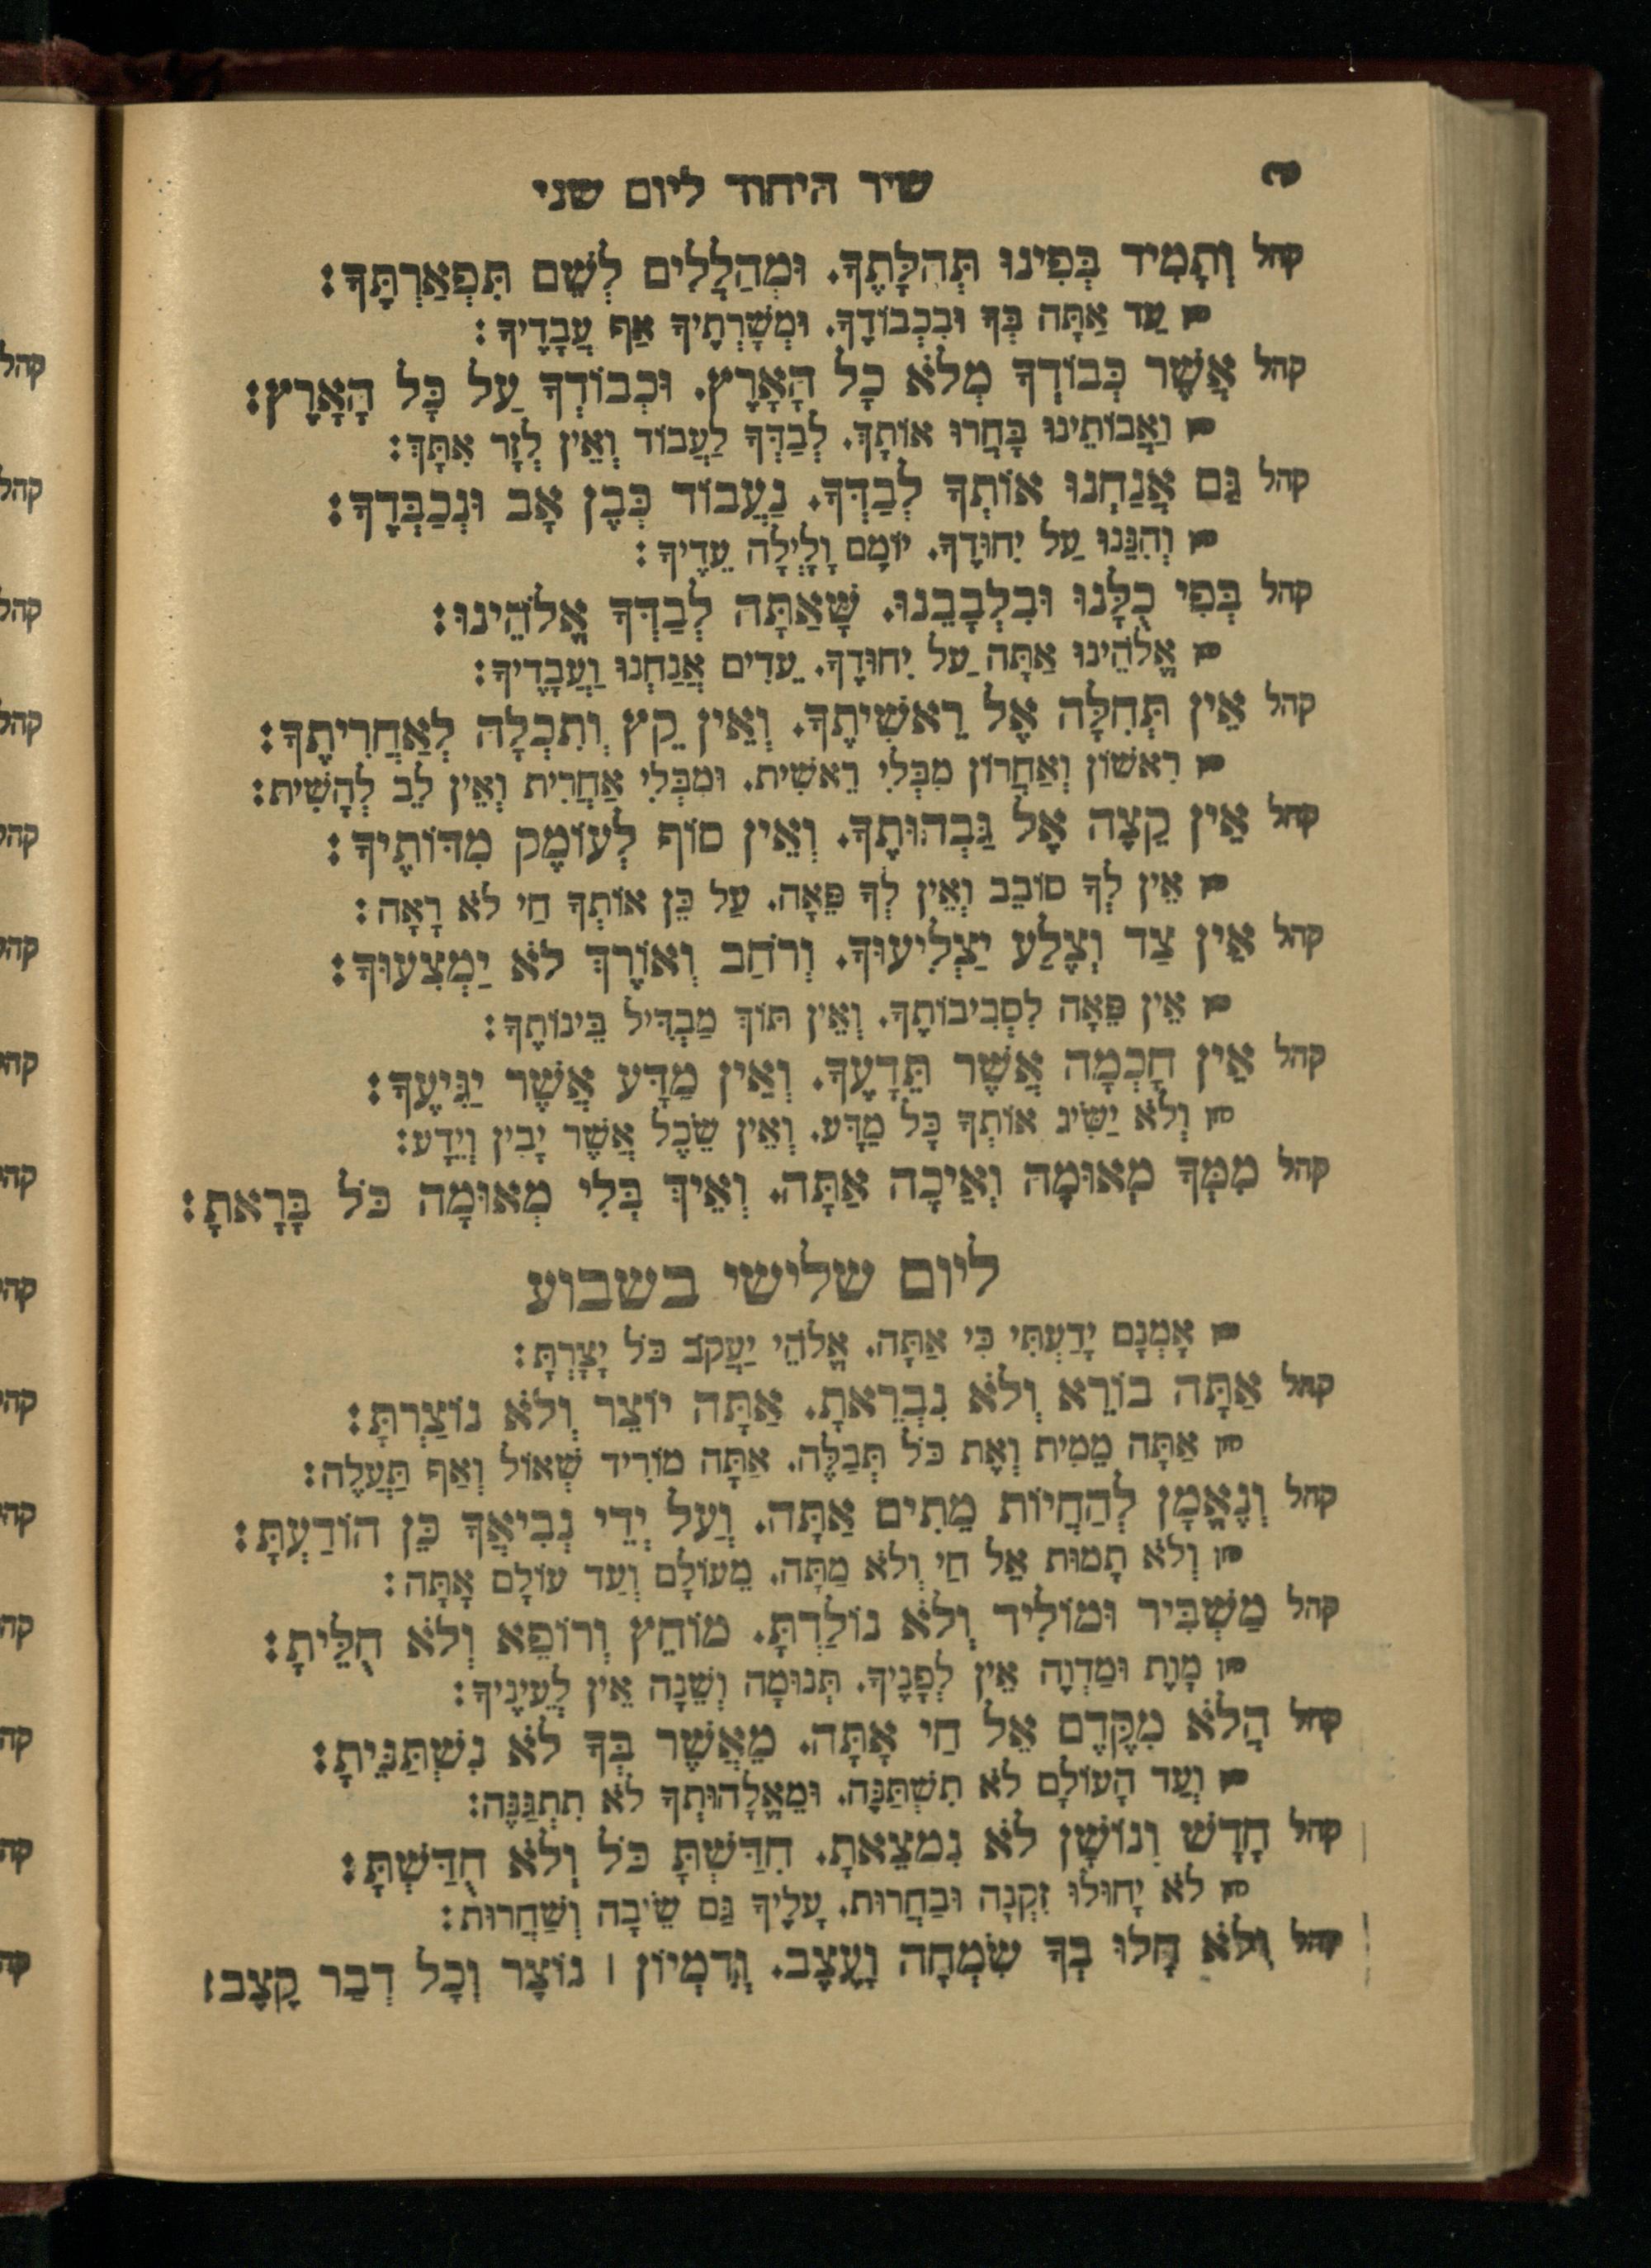 שיר היחוד ליום שני
קהל וְתָמִיד בְּפִינוּ תְּהִלָּתֶךָ. וּמְהַלְלִים לְשֵׁם תִּפְאַרְתֶּךָ:
חזן עַד אַתָּה בְּךָ וּבִכְבוֹדֶךָ. וּמְשָׁרְתֶיךָ אַף עֲבָדֶיךָ:
קהל אֲשֶׁר כְּבוֹדְךָ מְלֹא כָל הָאָרֶץ. וּכְבוֹדְךָ עַל כָּל הָאָרֶץ:
חזן וַאֲבוֹתֵינוּ בָּחֲרוּ אוֹתָךְ. לְבַדְּךָ לַעֲבוֹד וְאֵין לְזָר אִתָּךְ:
קהל גַּם אֲנַחְנוּ אוֹתְךָ לְבַדְּךָ. נַעֲבוֹד כְּבֶן אָב וּנְכַבְּדֶךָ:
חזן וְהִנְּנוּ עַל יִחוּדֶךָ. יוֹמָם וָלַיְלָה עֵדֶיךָ:
קהל בְּפִי כֻלָּנוּ וּבִלְבָבֵנוּ. שָׁאַתָּה לְבַדְּךָ אֱלֹהֵינוּ:
חזן אֱלֹהֵינוּ אַתָּה עַל יִחוּדֶךָ. עֵדִים אֲנַחְנוּ וַעֲבָדֶיךָ:
קהל אֵין תְּחִלָּה אֶל רֵאשִׁיתֶךָ. וְאֵין קֵץ וְתִכְלָה לְאַחֲרִיתֶךָ:
חזן רִאשׁוֹן וְאַחֲרוֹן מִבְּלִי רֵאשִׁית. וּמִבְּלִי אַחֲרִית וְאֵין לֵב לְהָשִׁית:
קהל אֵין קֵצֶה אֶל גַּבְהוּתֶךָ. וְאֵין סוֹף לְעוֹמֶק מִדּוֹתֶיךָ:
חזן אֵין לְךָ סוֹבֵב וְאֵין לְךָ פֵּאָה. עַל כֵּן אוֹתְךָ חַי לֹא רָאָה:
קהל אֵין צַד וְצֶלַע יַצְלִיעוּךָ. וְרֹחַב וְאוֹרֶךְ לֹא יַמְצִעוּךָ:
חזן אֵין פֵּאָה לִסְבִיבוֹתֶךָ. וְאֵין תּוֹךְ מַבְדִּיל בֵּינוֹתֶךָ:
קהל אֵין חָכְמָה אֲשֶׁר תֵּדָעֶךָ. וְאֵין מַדָּע אֲשֶׁר יַגִּיעֶךָ:
חזן וְלֹא יַשִּׂיג אוֹתְךָ כָּל מַדָּע. וְאֵין שֵׂכֶל אֲשֶׁר יָבִין וְיֵדָע:
קהל מִמְּךָ מְאוּמָה וְאֵיכָה אַתָּה. וְאֵיךְ בְּלִי מְאוּמָה כֹּל בָּרָאתָ:
ליום שלישי בשבוע
חזן אָמְנָם יָדַעְתִּי כִּי אַתָּה. אֱלֹהֵי יַעֲקֹב כֹּל יָצָרְתָּ:
קהל אַתָּה בוֹרֵא וְלֹא נִבְרֵאתָ. אַתָּה יוֹצֵר וְלֹא נוֹצַרְתָּ:
חזן אַתָּה מֵמִית וְאֶת כֹּל תְּבַלֶּה. אַתָּה מוֹרִיד שְׁאוֹל וְאַף תַּעֲלֶה:
קהל וְנֶאֱמָן לְהַחֲיוֹת מֵתִים אַתָּה. וְעַל יְדֵי נְבִיאֲךָ כֵּן הוֹדַעְתָּ:
חזן וְלֹא תָמוּת אֵל חַי וְלֹא מַתָּה. מֵעוֹלָם וְעַד עוֹלָם אָתָּה:
קהל מַשְׁבִּיר וּמוֹלִיד וְלֹא נוֹלַדְתָּ. מוֹחֵץ וְרוֹפֵא וְלֹא חֻלֵּיתָ:
חזן מָוֶת וּמַדְוֶה אֵין לְפָנֶיךָ. תְּנוּמָה וְשֵׁנָה אֵין לְעֵינֶיךָ:
קהל הֲלֹא מִקֶּדֶם אֵל חַי אָתָּה. מֵאֲשֶׁר בְּךָ לֹא נִשְׁתַּנֵּיתָ:
חזן וְעַד הָעוֹלָם לֹא תִשְׁתַּנֶּה. וּמֵאֱלָהוּתְךָ לֹא תִתְגַּנֶּה:
קהל חָדָשׁ וְנוֹשָׁן לֹא נִמְצֵאתָ. חִדַּשְׁתָּ כֹּל וְלֹא חֻדַּשְׁתָּ:
חזן לֹא יָחוּלוּ זִקְנָה וּבַחֲרוּת. עָלֶיךָ גַּם שֵׂיבָה וְשַׁחֲרוּת:
קהל וְלֹא חָלוּ בְךָ שִׂמְחָה וָעֶצֶב. וְדִמְיוֹן ׀ נוֹצָר וְכָל דְּבַר קָצֶב:
קהל
קהל
קהל
קהל